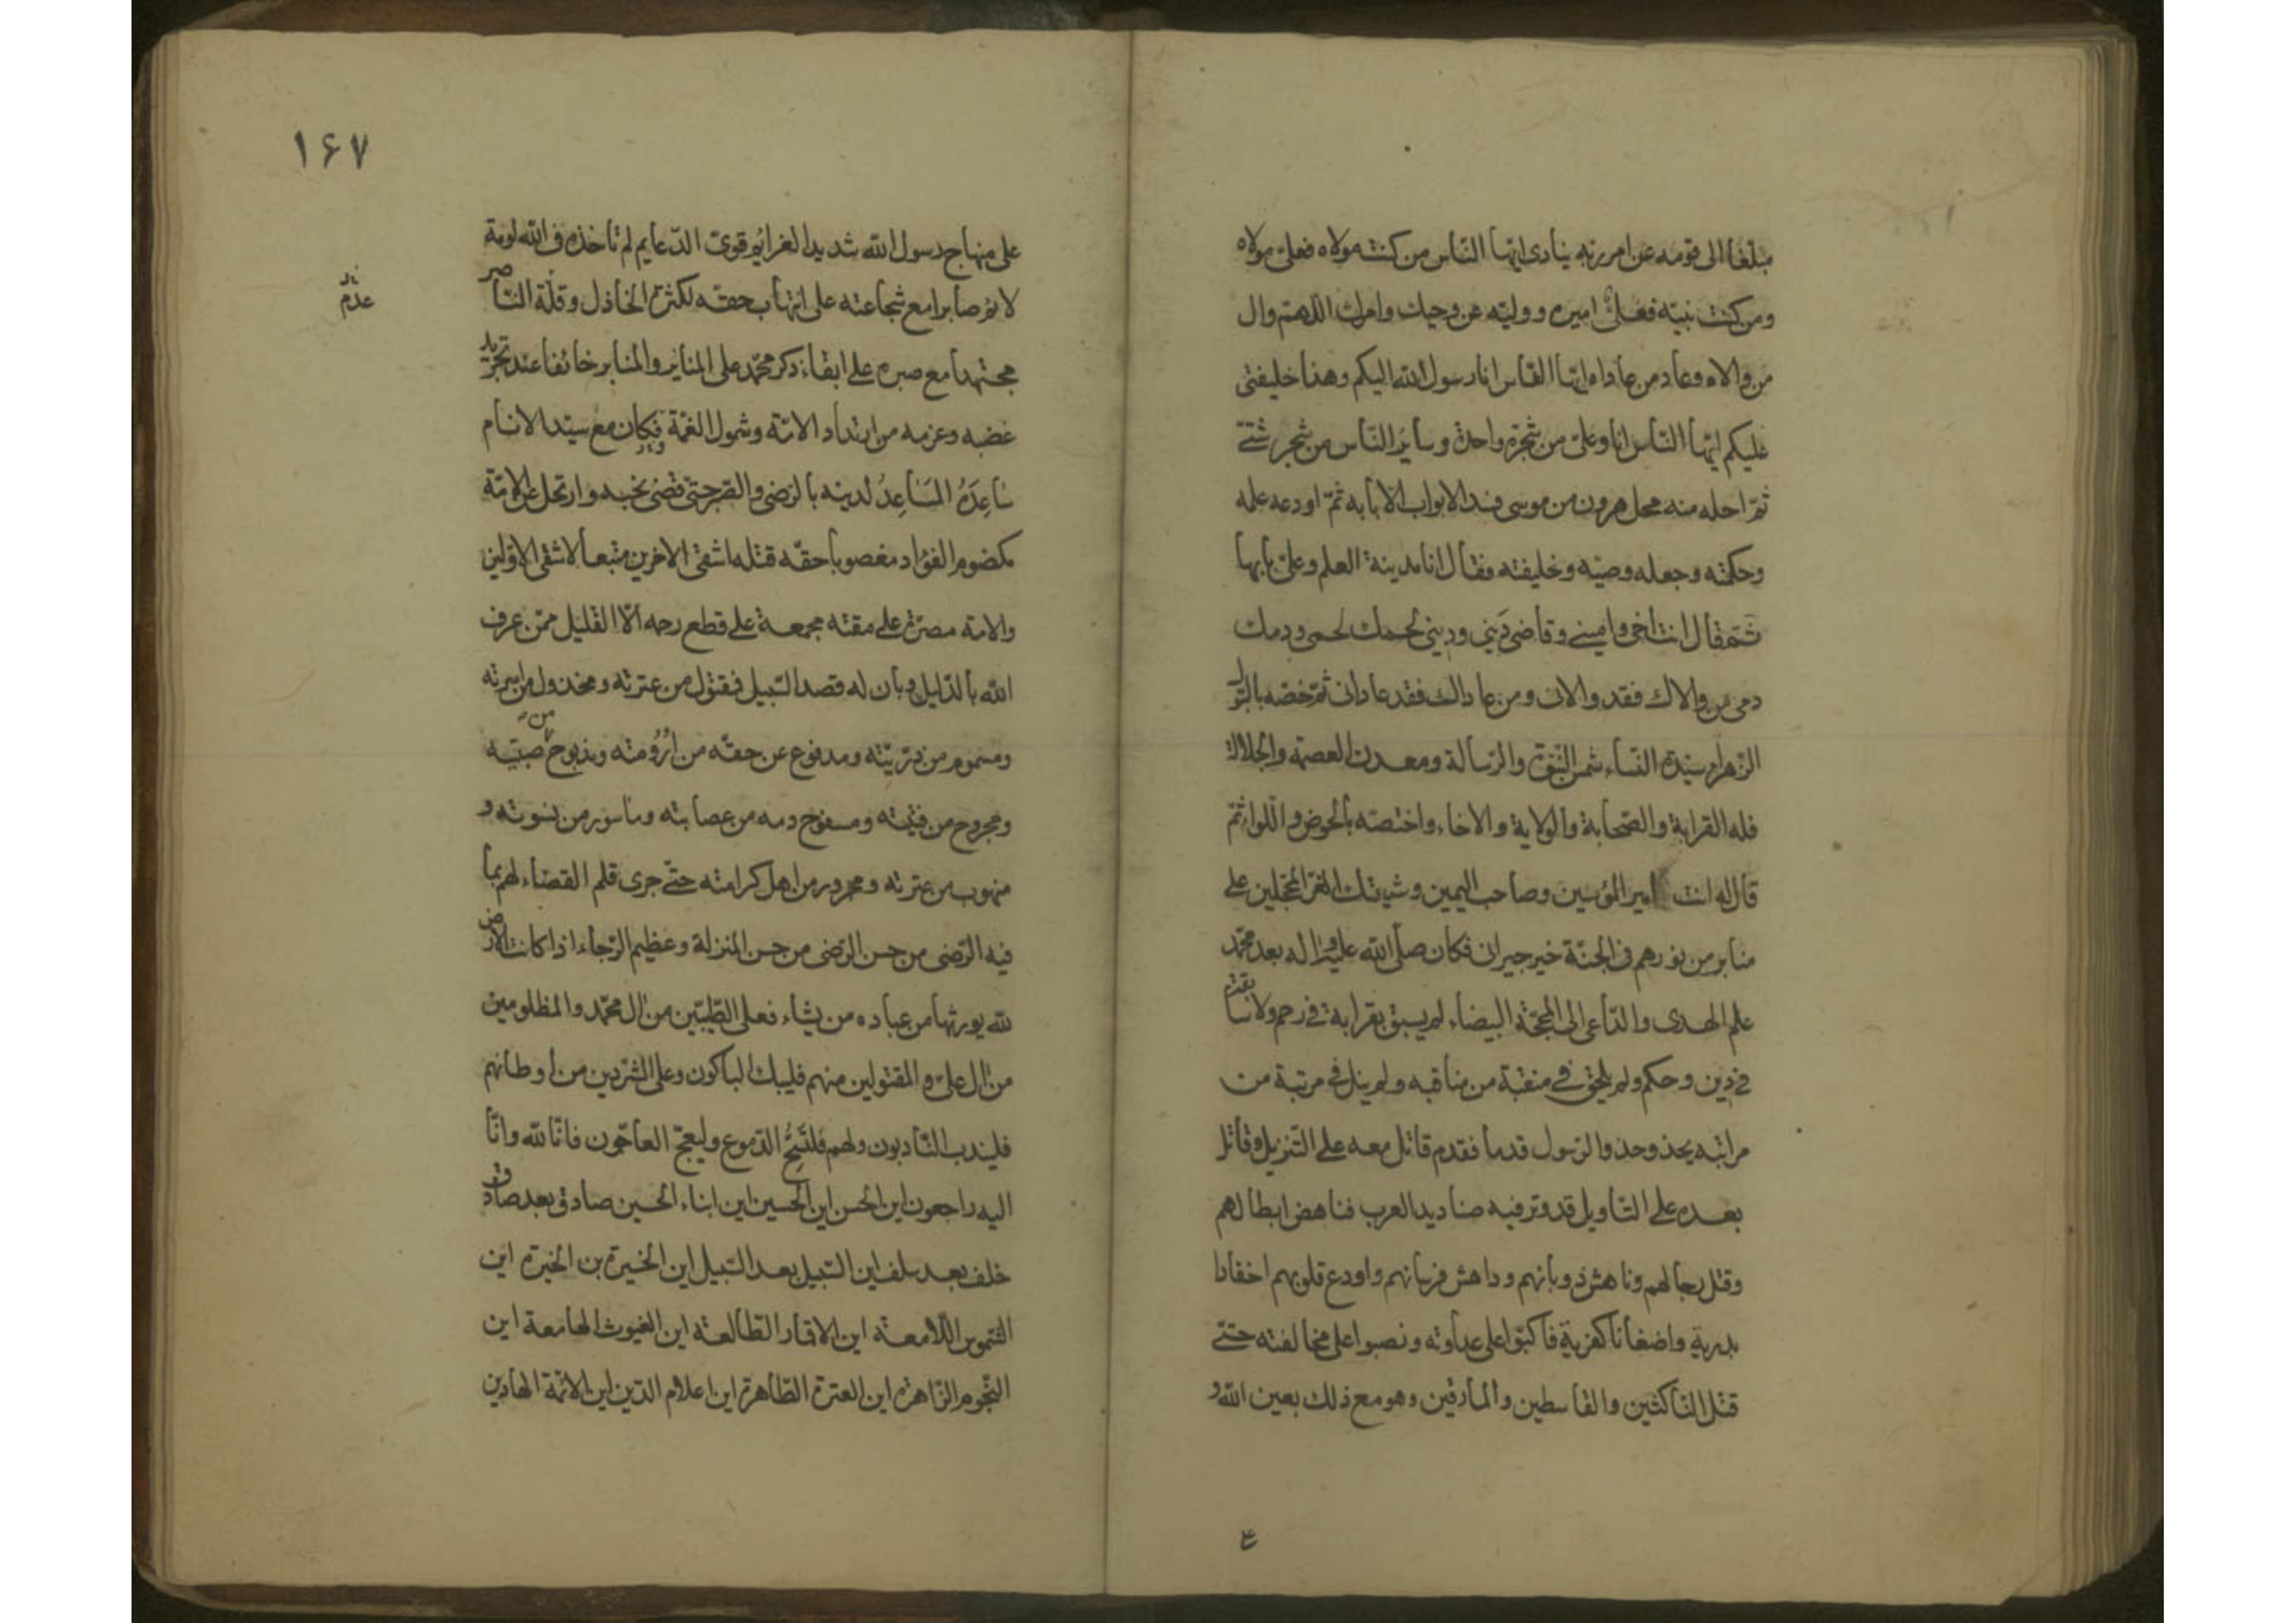 مبلغا الى قومه عن امر ربه ينادى ايها الناس من كنت مولاه فعلى مولاه
ومن كنت نبيه فعلى اميره ووليه عن وحيك وامرك اللهم وال
من والاه وعاد من عاداه ايها الناس انا رسول الله اليكم وهذا خليفتى
عليكم ايها الناس انا وعلى من شجرة واحدة وساير الناس من شجر شتى
ثم احله منه محل هرون من موسى فسد الابواب الا بابه ثم اودعه علمه
وحكمته وجعله وصيه وخليفته فقال انا مدينة العلم وعلى بابها
ثم قال انت اخى وامينى وقاضى دينى ودينى لحمك لحمى ودمك
دمى من والاك فقد والانى ومن عاداك فقد عادانى ثم خصه بالبتول
الزهراء سيدة النساء شمس النبوة والرسالة ومعدن العصمة والجلالة
فله القرابة والصحابة والولاية والاخاء واختصه بالحوض واللواء ثم
قال له انت امير المؤمنين وصاحب اليمين وشيعتك الغر المحجلين على
منابر من نورهم فى الجنة خير جيران فكان صلى الله عليه واله بعد محمد
علم الهدى والداعى الى المحجة البيضاء لم يسبق بقرابة فى رحم ولا سابقة
فى دين وحكم ولم يلحق فى منقبة من مناقبه ولم ينل فى مرتبة من
مراتبه يحذو حذو الرسول قدما فقدم قاتل معه على التنزيل وقاتل
بعده على التاويل قد وتر فيه صناديد العرب فناهض ابطالهم
وقتل رجالهم وناهش ذوبانهم وداهش فرسانهم واودع قلوبهم احقادا
بدرية واضغانا كفرية فاكبوا على عداوته ونصبوا على مخالفته حتى
قتل الناكثين والقاسطين والمارقين وهو مع ذلك بعين الله و
ع
۱۶۷
على منهاج رسول الله شديد الغرايم قوى الدعايم لم تاخذه فى الله لومة
لائم صابرا مع شجاعته على انتهاب حقه لكثرة الخاذل وقلة الناصر
عدم
مجتهدا مع صبره على ابقاء ذكر محمد على المناير والمنابر خائفا عند تجريد
غضبه وعزمه من ارتداد الامة وشمول الغمة فكان مع سيد الانام
ساعده المساعد لدينه بالرضى والصبر حتى قضى نحبه وارتحل عن الامة
مكضوم الفؤاد مغصوبا حقه قتله اشقى الاخرين متبعا لاشقى الاولين
والامة مصرة على مقته مجمعة على قطع رحمه الا القليل ممن عرف
الله بالدليل وبان له قصد السبيل فمقتول من عترته ومخذول من اسرته
ومسموم من ذريته ومدفوع عن حقه من ارومته ومذبوح من صبيته
ومجروح من فتيته ومسفوح دمه من عصابته وماسور من نسوته و
منهوب من عترته ومحروم من اهل كرامته حتى جرى قلم القضاء لهم بما
فيه الرضى من حسن الرضى من حسن المنزلة وعظيم الرجاء اذا كانت الارض
لله يورثها من عباده من يشاء فعلى الطيبين من ال محمد والمظلومين
من ال على والمقتولين منهم فليبك الباكون وعلى المشردين من اوطانهم
فليندب النادبون ولهم فلتسح الدموع وليعج العاجون فانا لله وانا
اليه راجعون اين الحسن اين الحسين اين ابناء الحسين صادق بعد صادق
خلف بعد سلف اين السبيل بعد السبيل اين الخيرة بن الخيرة اين
الشموس اللامعة اين الاقمار الطالعة اين الغيوث الهامعة اين
النجوم الزاهرة اين العترة الطاهرة اين اعلام الدين اين الائمة الهادين